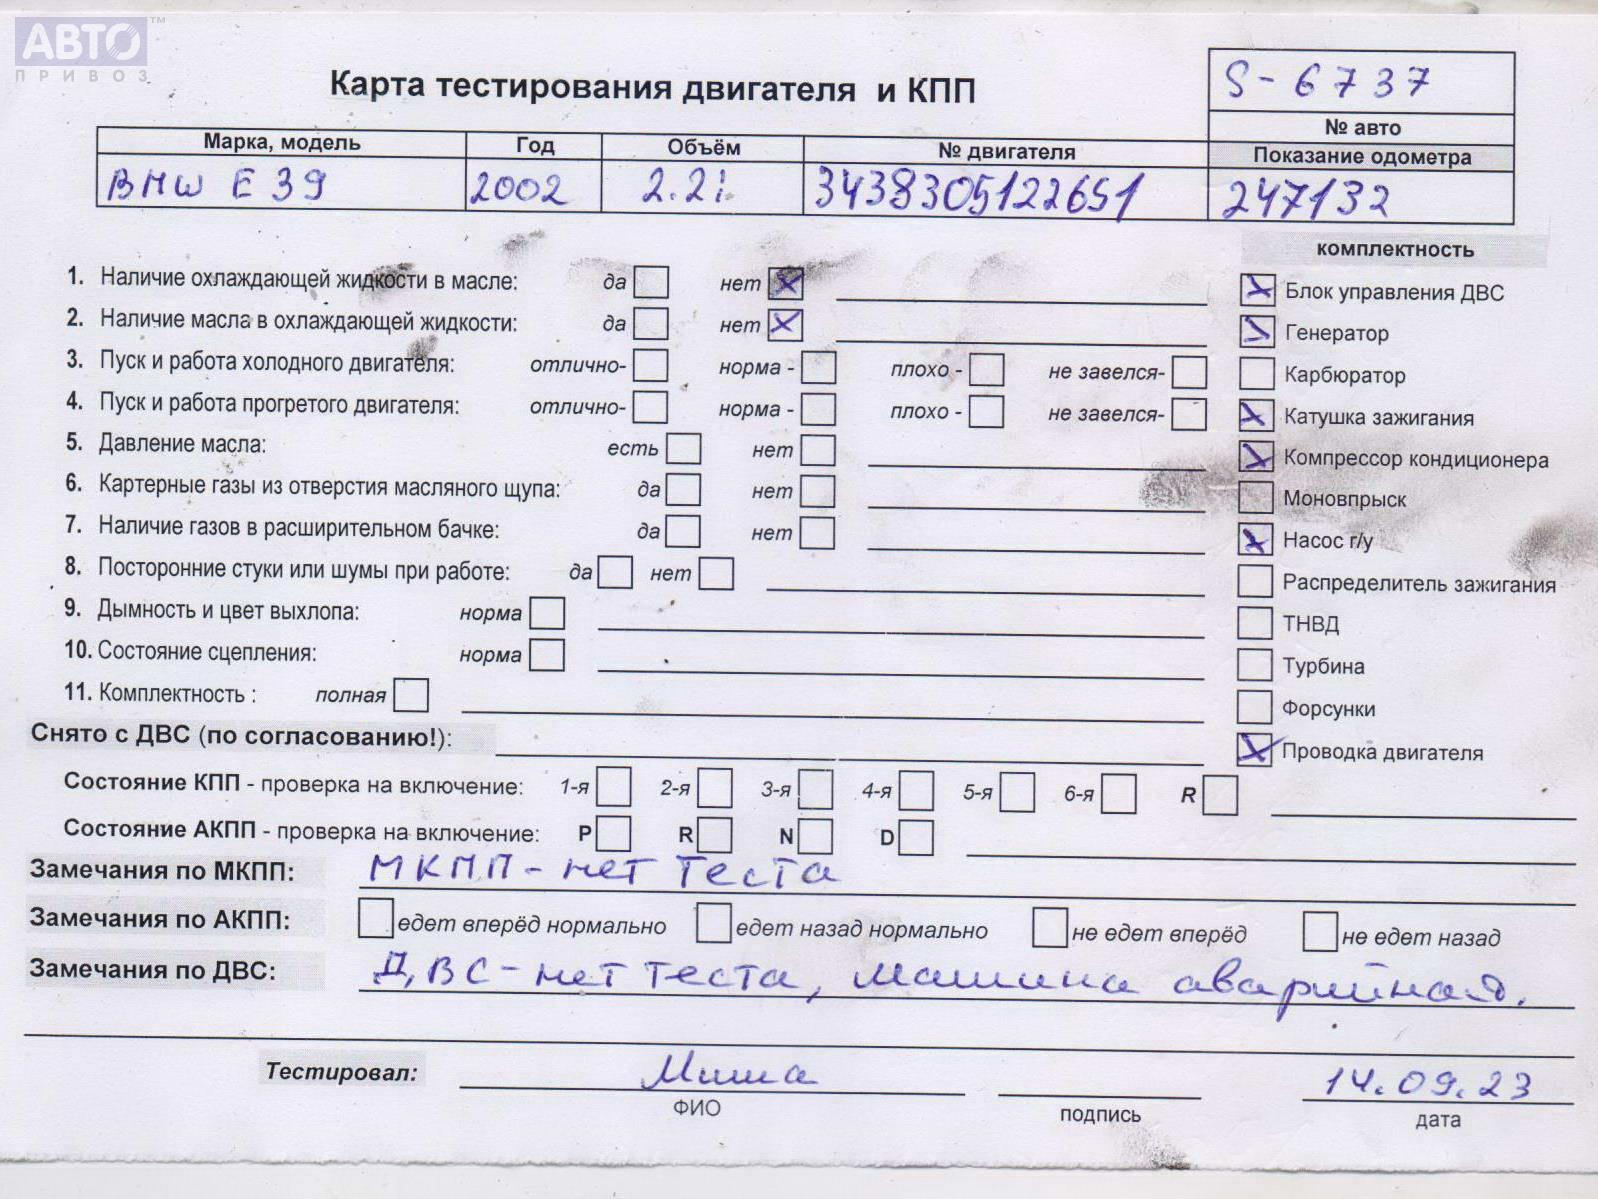 АВТО™
ПРИВОЗ
Карта тестирования двигателя и КПП
S-6737
№ авто
Марка, модель Год Объём № двигателя Показание одометра
BMW E39 2002 2.2i 3438305122651 247132
комплектность
1. Наличие охлаждающей жидкости в масле: да нет
Блок управления ДВС
2. Наличие масла в охлаждающей жидкости: да нет
Генератор
3. Пуск и работа холодного двигателя: отлично- норма - плохо - не завелся-
Карбюратор
4. Пуск и работа прогретого двигателя: отлично- норма - плохо - не завелся-
Катушка зажигания
5. Давление масла: есть нет
Компрессор кондиционера
6. Картерные газы из отверстия масляного щупа: да нет
Моновпрыск
7. Наличие газов в расширительном бачке: да нет
Насос г/у
8. Посторонние стуки или шумы при работе: да нет
Распределитель зажигания
9. Дымность и цвет выхлопа: норма
ТНВД
10. Состояние сцепления: норма
Турбина
11. Комплектность : полная
Форсунки
Снято с ДВС (по согласованию!):
Проводка двигателя
Состояние КПП - проверка на включение: 1-я 2-я 3-я 4-я 5-я 6-я R
Состояние АКПП - проверка на включение: P R N D
Замечания по МКПП: МКПП - нет теста
Замечания по АКПП: едет вперёд нормально едет назад нормально не едет вперёд не едет назад
Замечания по ДВС: ДВС - нет теста, машина аварийная.
Тестировал: Миша 14.09.23
ФИО подпись дата